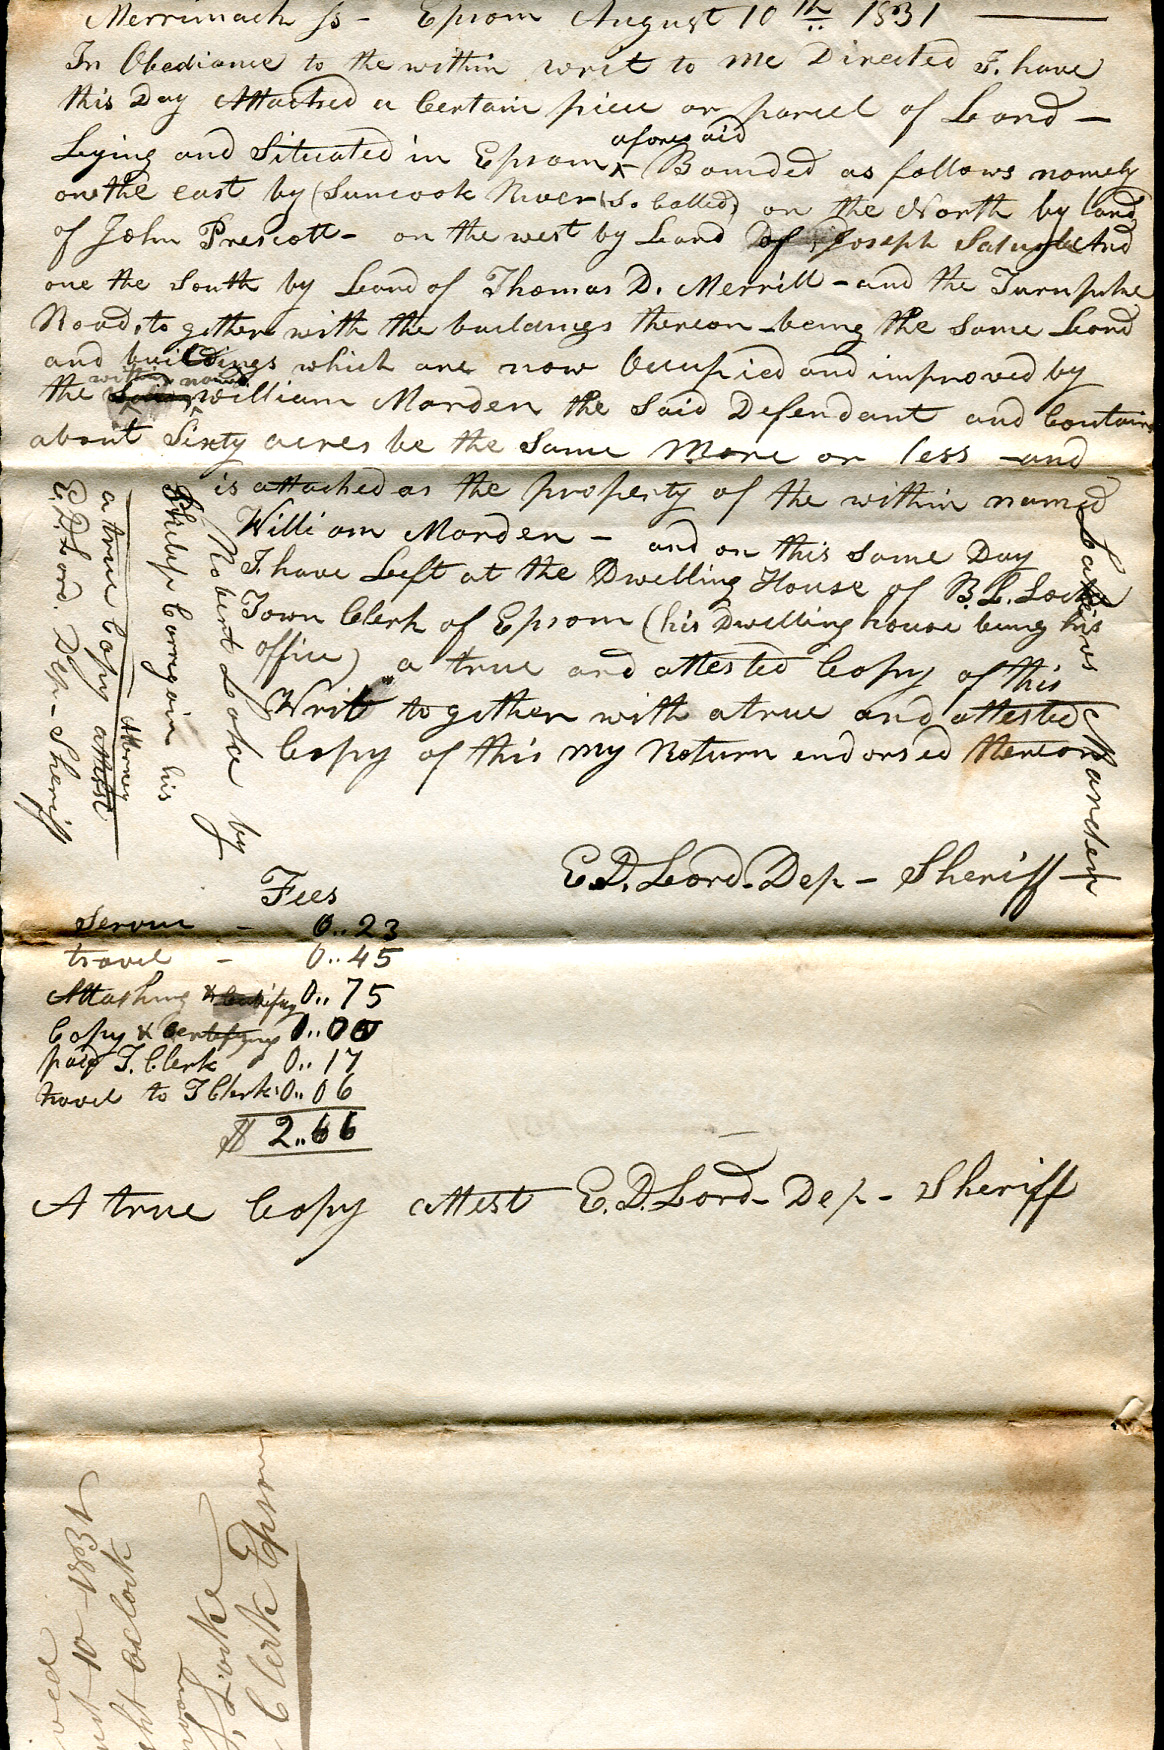 Merrimack ss - Epsom August 10th 1831
In Obediance to the within writ to me Directed I have
this Day Attached a Certain piece or parcel of Land -
Lying and Situated in Epsom aforesaid Bounded as follows namely
on the east by (Suncook River (So Called) on the North by land
of John Prescott - on the west by Land of Joseph And
one the South by Land of Thomas D. Merrill - and the Turnpike
Road, to gether with the buildings thereon being the Same Land
and buildings which are now Occupied and improved by
the within named William Marden the Said Defendant and Contains
about Sixty acres be the Same More or less - and
is attached as the property of the within named
William Marden - and on this Same Day
I have Left at the Dwelling House of B. L. Locke
Town Clerk of Epsom (his Dwelling house being his
office) a true and attested Copy of this
Writ together with a true and attested
Copy of this my Return endorsed thereon
E.D. Lord. Dep - Sheriff
Robert Locke by
Philip Corrgain his
Attorney
a true Copy attest
E.D. Lord. Dep - Sheriff
Marden
Fees
Servic - 0..23
travel - 0..45
Attaching & 0..75
Copy & Certifying
paid T. Clerk 0..17
travel to T Clerk 0..06
$ 2..66
A true Copy attest E. D. Lord - Dep - Sheriff
10 - 1831
oclock
Locke
Clerk Epsom